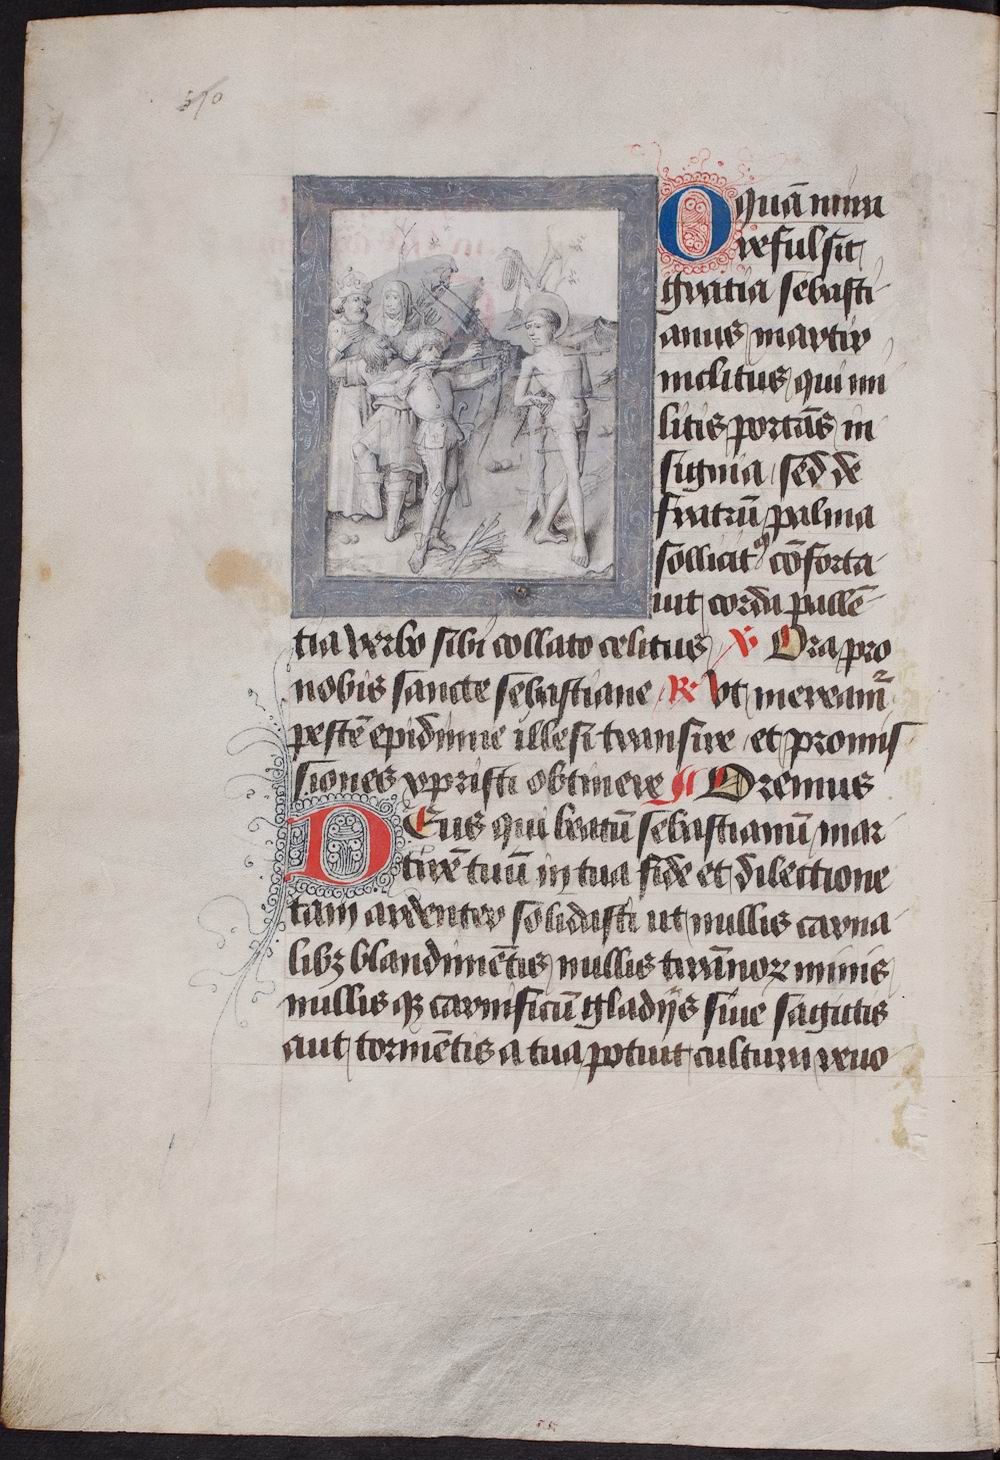 O quā mira
refulsit
gratia sebasti
anus martir
inclitus qui mi
litis portās in
signia sed de
fratrū palma
sollicitꝰ cōforta
uit corda pallē
tia verbo sibi collato celitus ℣ Ora pro
nobis sancte sebastiane ℟ Vt mereamr̄
pestē epidimie illesi transire et promis
siones xpristi obtinere Oremus
DEus qui beatū sebastianū mar
tirē tuū in tua fide et dilectione
tam ardenter solidasti ut nullis carna
libꝫ blandimētis nullis tirānoꝝ minis
nullis qꝫ carnificū gladijs siue sagittis
aut tormētis a tua potuit cultura reuo